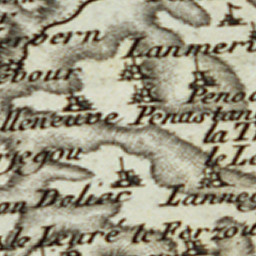 erbern
Lanmeri
bour
Peno
lleneuve Penastan
la Tr
rjegou
le Le
an Dolier Lanneg
le Leuré le Ferzou